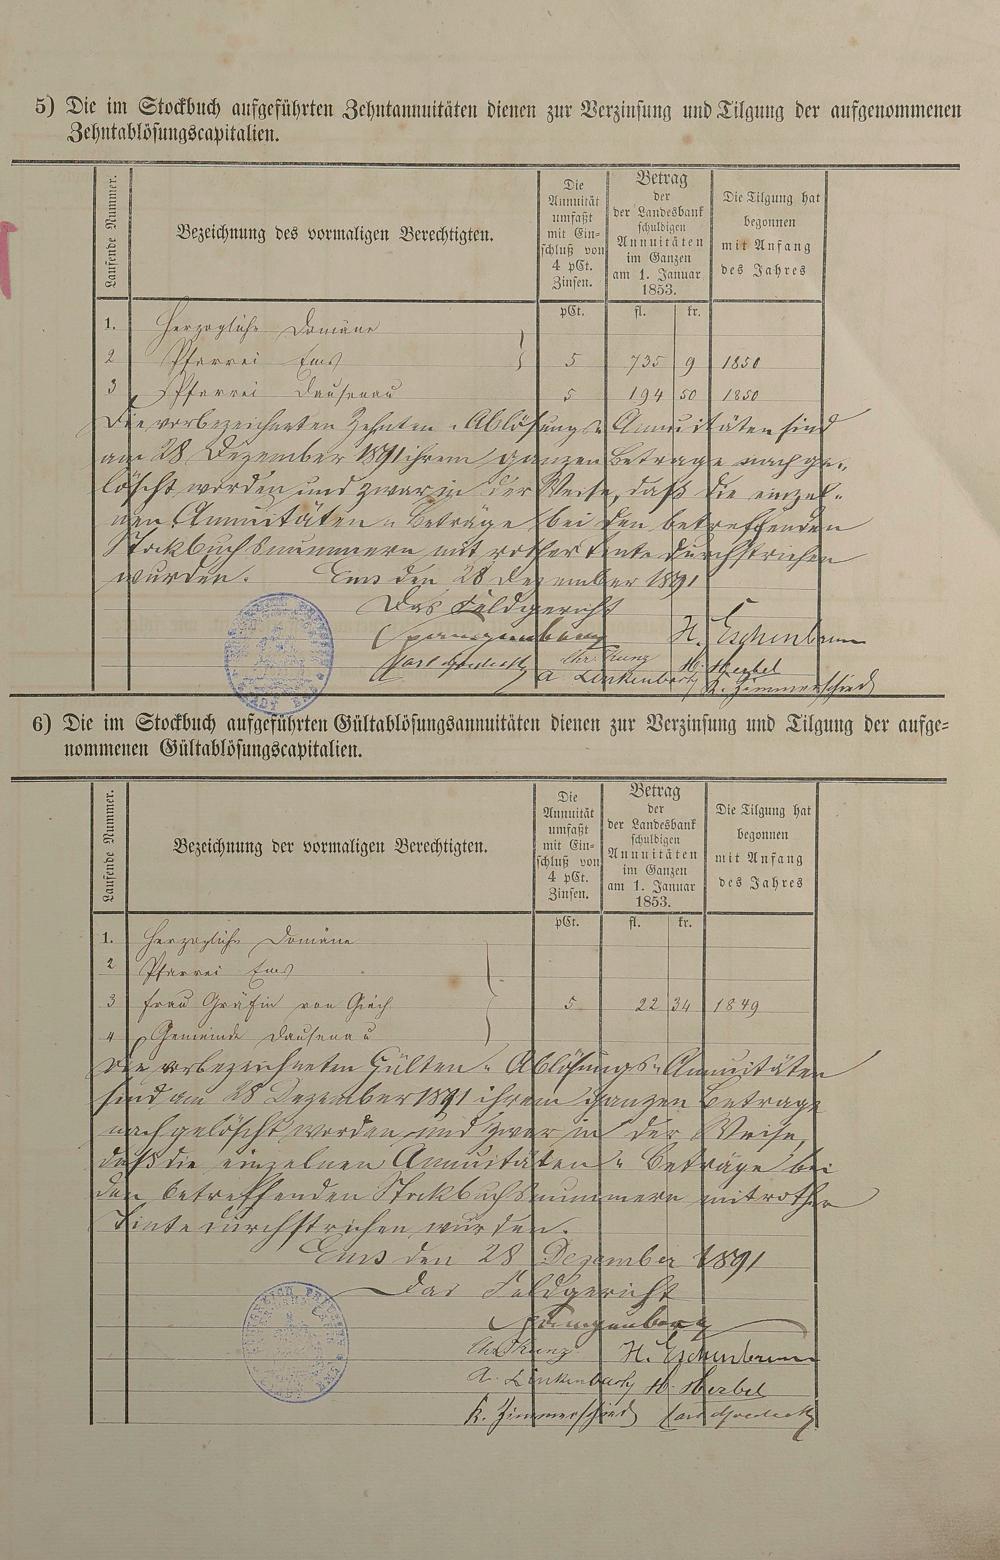 5) Die im Stockbuch aufgeführten Zehntannuitäten dienen zur Verzinsung und Tilgung der aufgenommenen
Zehntablösungscapitalien.
Laufende Nummer.
Bezeichnung des vormaligen Berechtigten.
Die
Annuität
umfaßt
mit Ein-
schluß von
4 pCt.
Zinsen.
Betrag
der
der Landesbank
schuldigen
Annuitäten
im Ganzen
am 1. Januar
1853.
Die Tilgung hat
begonnen
mit Anfang
des Jahres
pCt. fl. kr.
1. Herzogliche Domäne
2 Pfarrei Ems 5 735 9 1850
3 Pfarrei Dausenau 5 194 50 1850
Die vorbezeichneten Zehnten-Ablösungs-Annuitäten sind
am 28 Dezember 1891 ihrem ganzen Betrage nach ge-
löscht worden und zwar in der Weise, daß die einzel-
nen Annuitäten-Beträge bei den betreffenden
Stockbuchsnummern mit rother Tinte durchstrichen
wurden. Ems den 28 Dezember 1891
Das Feldgericht
Spangenberg H. Eschenbrenner
Chr. Kunz H. Herbel
A Linkenbach K. Zimmerschied
6) Die im Stockbuch aufgeführten Gültablösungsannuitäten dienen zur Verzinsung und Tilgung der aufge-
nommenen Gültablösungscapitalien.
Laufende Nummer.
Bezeichnung der vormaligen Berechtigten.
Die
Annuität
umfaßt
mit Ein-
schluß von
4 pCt.
Zinsen.
Betrag
der
der Landesbank
schuldigen
Annuitäten
im Ganzen
am 1. Januar
1853.
Die Tilgung hat
begonnen
mit Anfang
des Jahres
pCt. fl. kr.
1. Herzogliche Domäne
2 Pfarrei Ems
3 Frau Gräfin von Giech 5 22 34 1849
4 Gemeinde Dausenau
Die vorbezeichneten Gülten-Ablösungs-Annuitäten
sind am 28 Dezember 1891 ihrem ganzen Betrage
nach gelöscht worden und zwar in der Weise,
daß die einzelnen Annuitäten-Beträge bei
den betreffenden Stockbuchsnummern mit rother
Tinte durchstrichen wurden.
Ems den 28 Dezember 1891
Das Feldgericht
Spangenberg
Chr. Kunz H. Eschenbrenner
A. Linkenbach H. Herbel
K. Zimmerschied